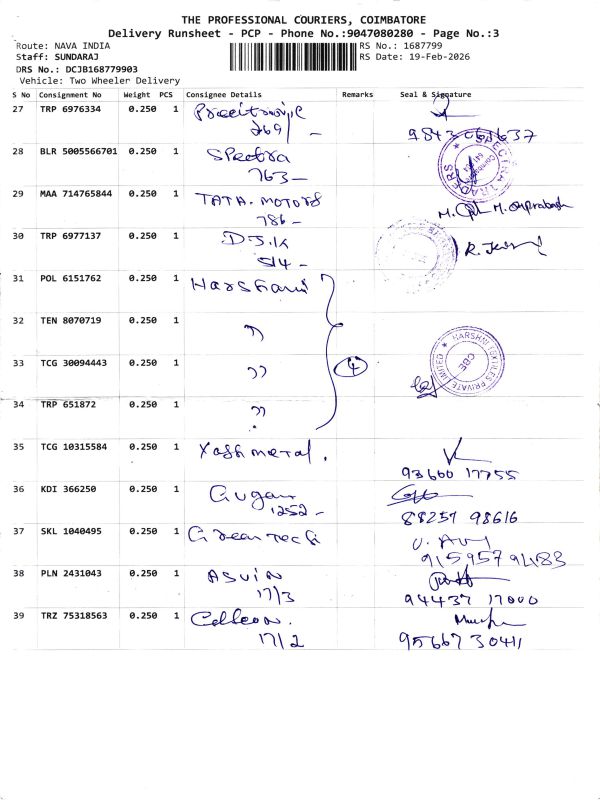 THE PROFESSIONAL COURIERS, COIMBATORE
Delivery Runsheet - PCP - Phone No.:9047080280 - Page No.:3
Route: NAVA INDIA
Staff: SUNDARAJ
DRS No.: DCJB168779903
Vehicle: Two Wheeler Delivery
RS No.: 1687799
RS Date: 19-Feb-2026
S No Consignment No Weight PCS Consignee Details Remarks Seal & Signature
27 TRP 6976334 0.250 1
269/ -
28 BLR 5005566701 0.250 1 Spectra
763-
SPECTRA TRADERS
29 MAA 714765844 0.250 1 TATA. MOTORS
786 -
30 TRP 6977137 0.250 1 D.J.K
514 -
31 POL 6151762 0.250 1 Harshani
32 TEN 8070719 0.250 1 "
33 TCG 30094443 0.250 1 " 4
HARSHNI TEXTILES PRIVATE LIMITED
CBE
34 TRP 651872 0.250 1 "
35 TCG 10315584 0.250 1 Yash metal.
93600 17755
36 KDI 366250 0.250 1 Gugan
1252 -
88257 98616
37 SKL 1040495 0.250 1 Green tech
9159579483
38 PLN 2431043 0.250 1 ASVIN
17/3
94437 17000
39 TRZ 75318563 0.250 1
17/2
9566730411